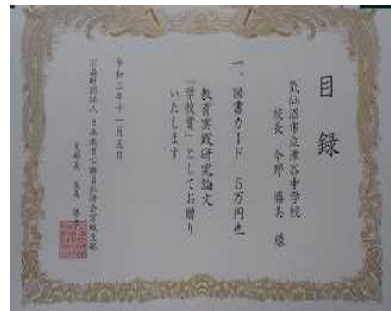 目録
気仙沼市立津谷中学校
校長 今野 勝美 様
一、図書カード 5万円也
教育実践研究論文
「学校賞」としてお贈り
いたします
令和二年十一月五日
公益財団法人 日本教育公務員弘済会宮城支部
支部長